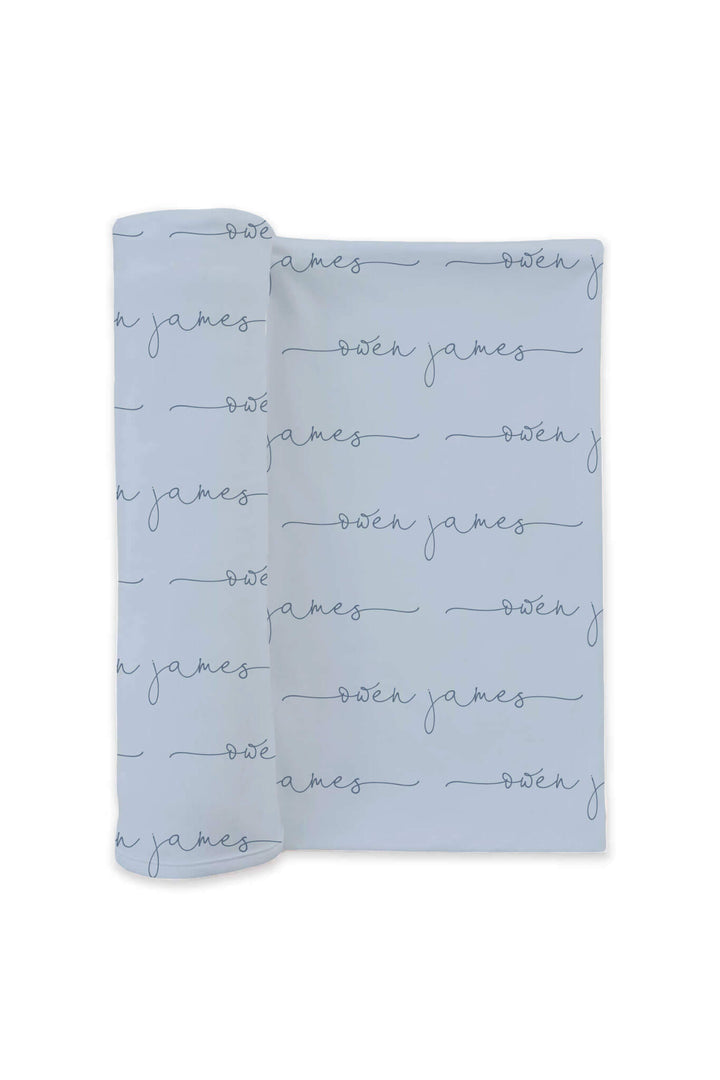 owe
ames owen j
n james
owen james
owe
ames owen j
n james
owen james
owe
ames owen j
n james
owen james
owe
ames owen j
n james